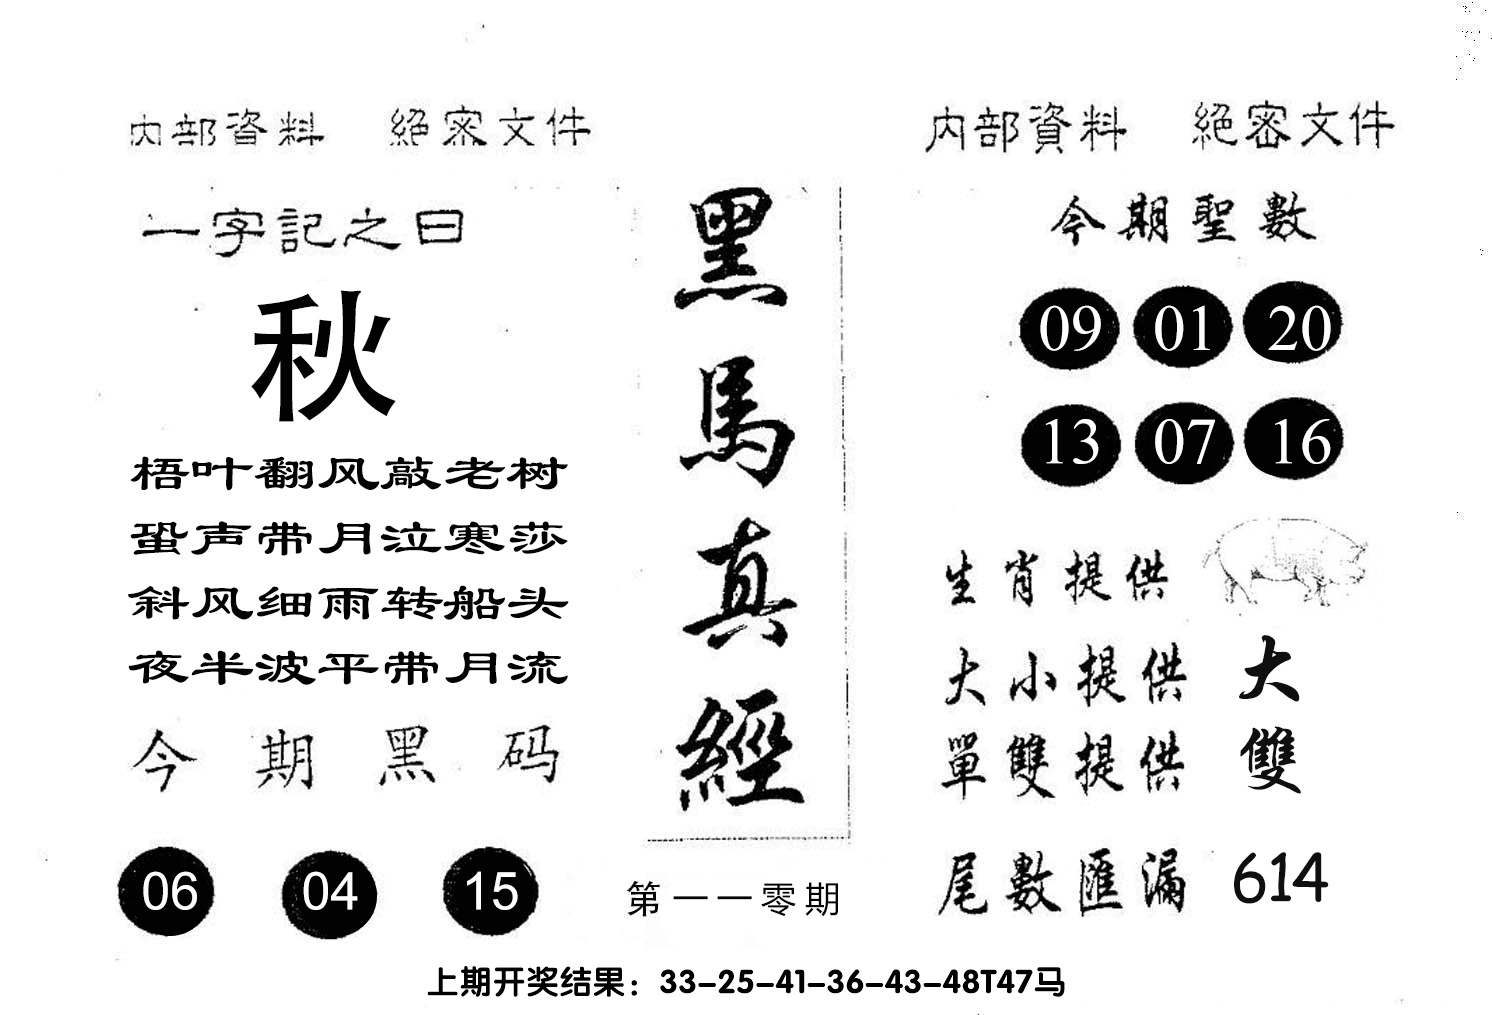 内部資料 絕密文件
一字記之曰
秋
梧叶翻风敲老树
蛩声带月泣寒莎
斜风细雨转船头
夜半波平带月流
今期黑码
06 04 15
黑馬真經
第一一零期
内部資料 絕密文件
今期聖數
09 01 20
13 07 16
生肖提供
大小提供 大
單雙提供 雙
尾數匯漏 614
上期开奖结果：33-25-41-36-43-48T47马